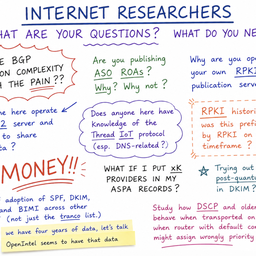 INTERNET RESEARCHERS
HAT ARE YOUR QUESTIONS? WHAT DO YOU NE
BGP
ON COMPLEXITY
THE PAIN??
Are you publishing
ASO ROAs?
Why? Why not?
Why are you ope
your own RPKI
publication serv
ne here operate
2 server and
to share
data?
Does anyone here have
Knowledge of the
Thread IoT protocol
(esp. DNS-related?)
RPKI histori
was this prefi
by RPKI on
timeframe?
MONEY!!
WHAT IF I PUT xK
PROVIDERS IN MY
ASPA RECORDS?
Trying out
post-quant
in DKIM?
adoption of SPF, DKIM,
and BIMI across other
(not just the tranco list.)
we have four years of data, let's talk
OpenIntel seems to have that data
Study how DSCP and olde
behave when transported on
router with default con
might assign wrongly priority